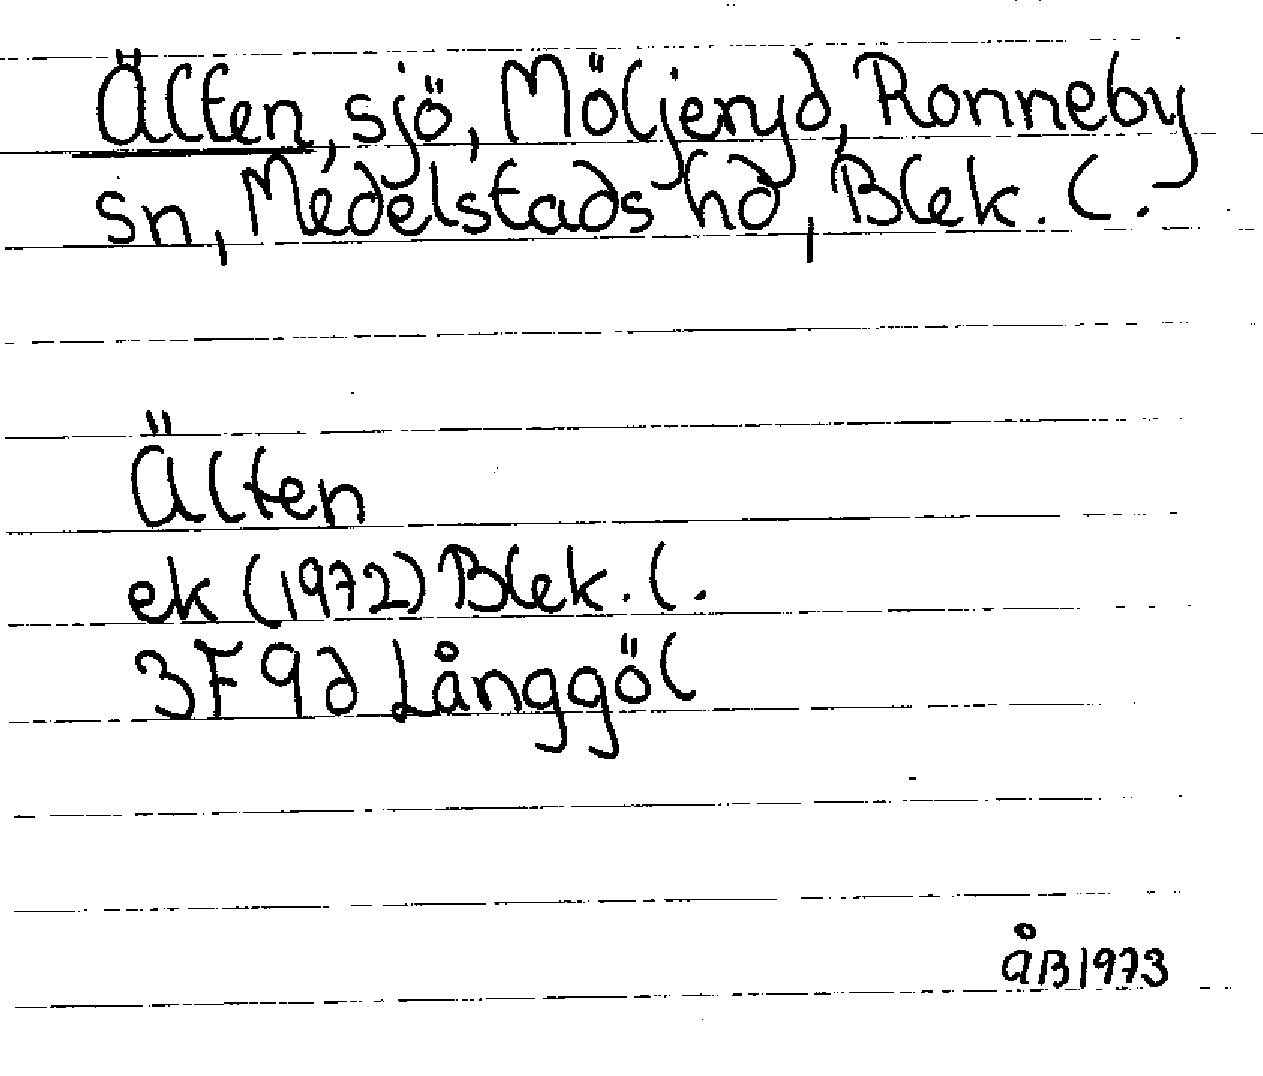 Älten, sjö, Möljeryd, Ronneby
sn, Medelstads hd, Blek. l.
Älten
ek (1972) Blek. l.
3F 9d Långgöl
åB 1973